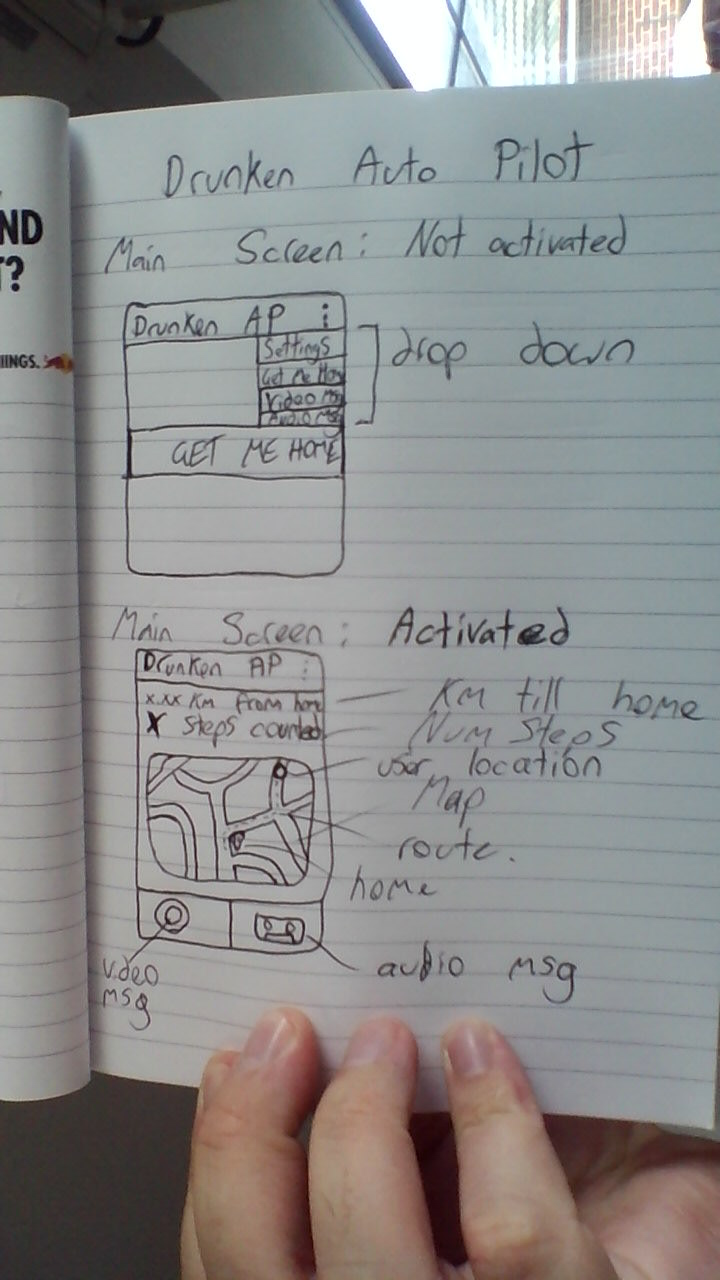 ND
?
HINGS.
Drunken Auto Pilot
Main Screen: Not activated
Drunken AP
Settings
Get Me Hom
Video Msg
Audio Msg
drop down
GET ME HOME
Main Screen: Activated
Drunken AP
x.xx Km from home
X Steps counted
Km till home
Num Steps
user location
Map
route.
home
video
msg
audio msg